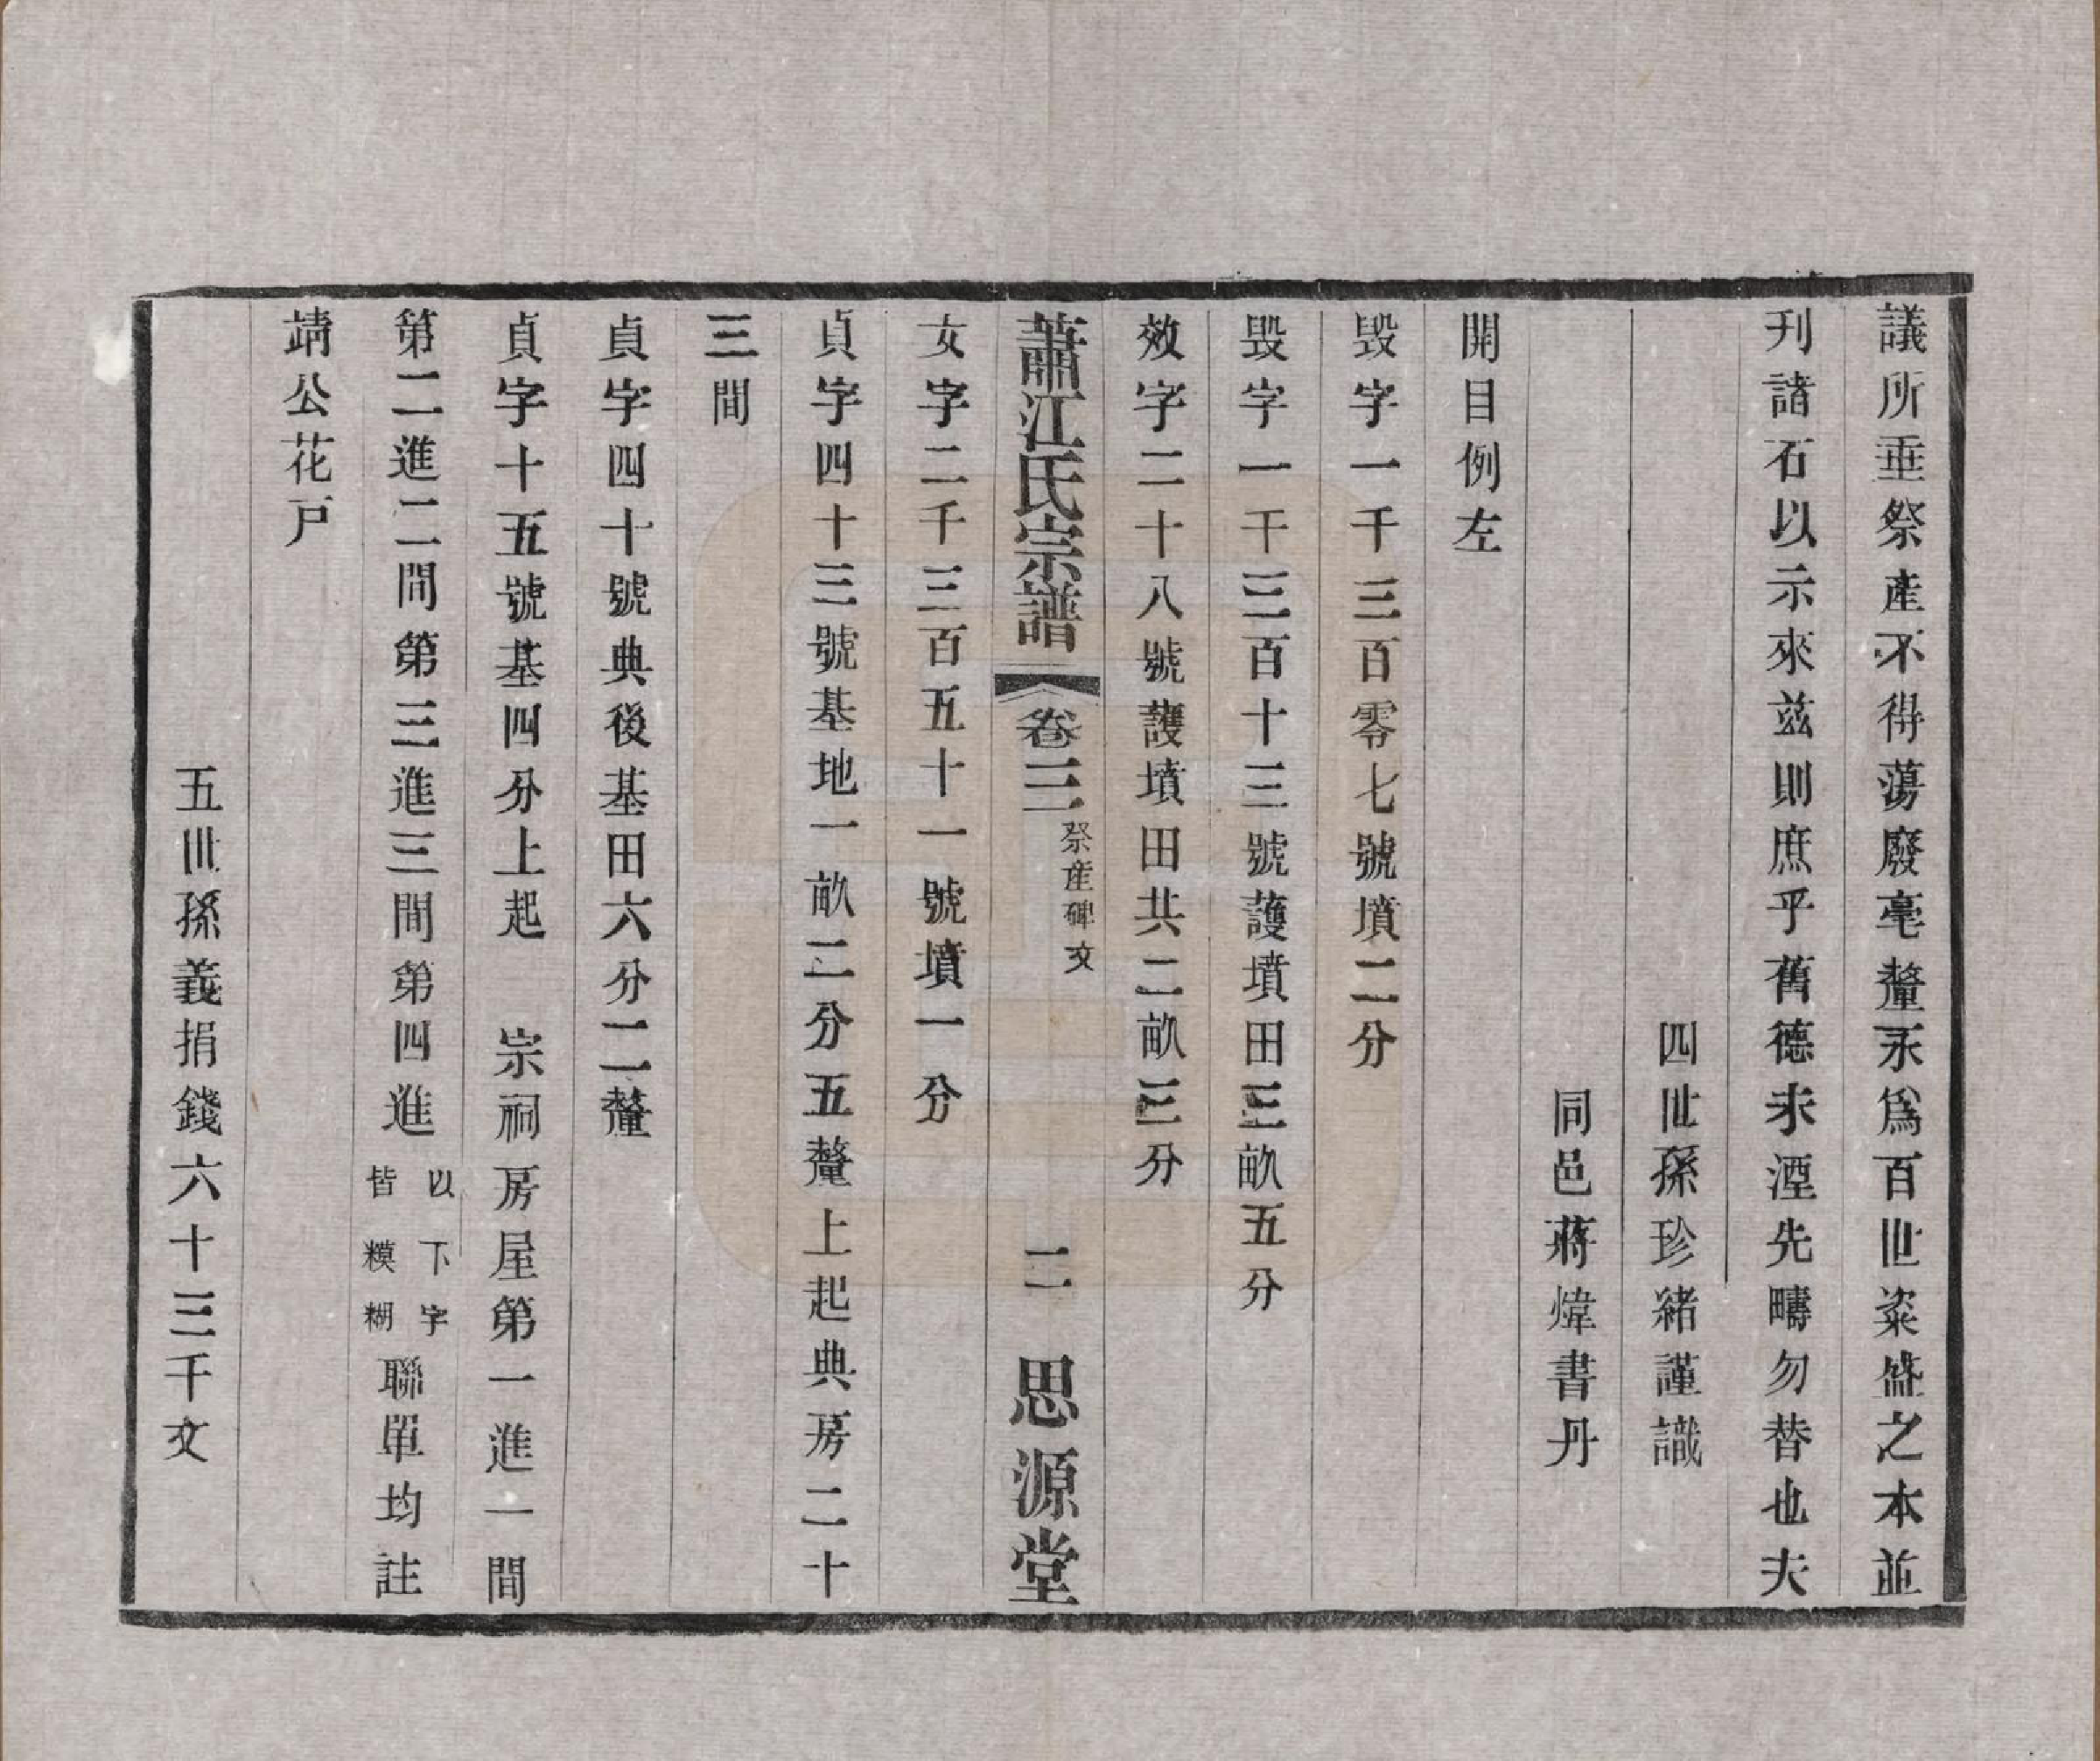 議所垂祭產不得蕩廢毫釐永爲百世粢盛之本並
刊諸石以示來兹則庶乎舊德未湮先疇勿替也夫
四世孫珍緒謹識
同邑蔣煒書丹
開目例左
毀字一千三百零七號墳二分
毀字一千三百十三號護墳田三畝五分
效字二十八號護墳田共二畝三分
蕭江氏宗譜 卷三 祭產碑文 二 思源堂
女字二千三百五十一號墳一分
貞字四十三號基地一畝二分五釐上起典房二十
三間
貞字四十號典後基田六分二釐
貞字十五號基四分上起 宗祠房屋第一進一間
第二進二間第三進三間第四進以下字皆糢糊聯單均註
靖公花戶
五世孫義捐錢六十三千文